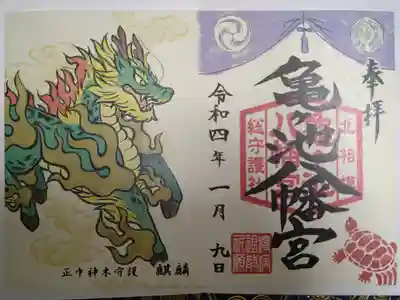 奉拝
北相模
亀ヶ池八幡宮
総守護社
令和四年一月九日
正中神木守護 麒麟